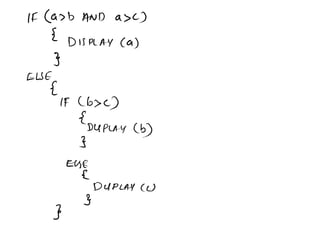 IF (a>b AND a>c)
{
DISPLAY (a)
}
ELSE
{
IF (b>c)
{
DISPLAY (b)
}
ELSE
{
DISPLAY (c)
}
}